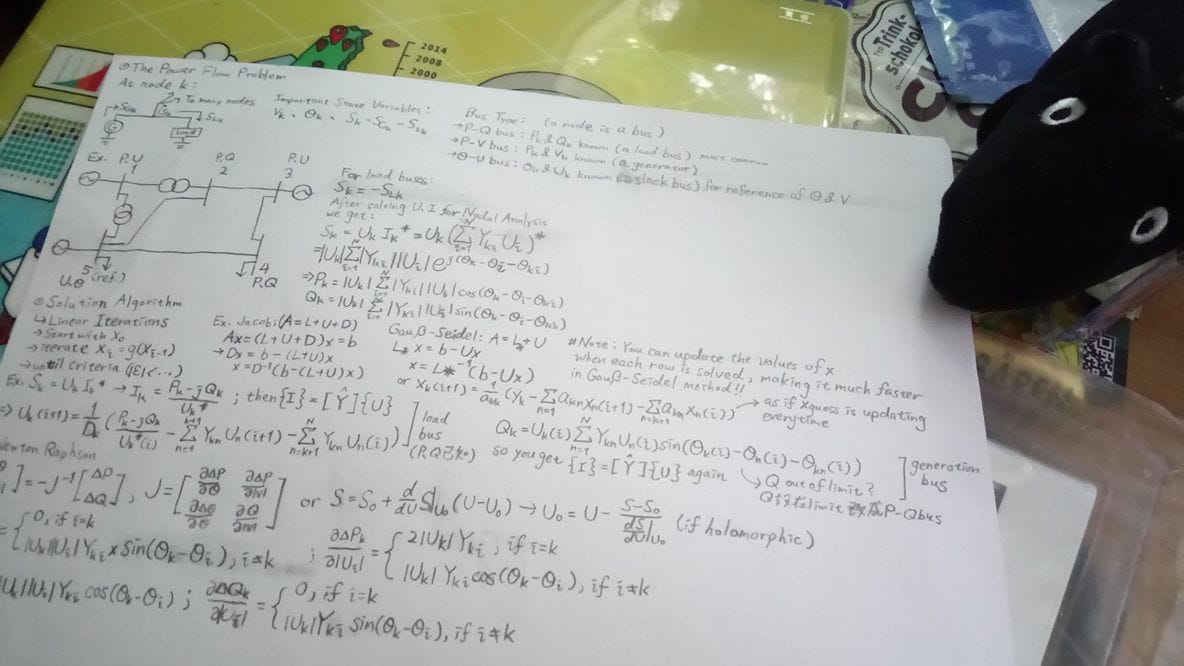 2014
2008
2000
Trink-
schokola
⊙The Power Flow Problem
At node k:
To many nodes
S_Lk
Load
Important State Variables:
V_k、θ_k、S_k=S_Gk-S_Lk
Bus Type: (a node is a bus)
→P-Q bus: P_k & Q_k known (a load bus) most common
→P-V bus: P_k & V_k known (a generator)
→θ-U bus: θ_k & U_k known (a slack bus) for reference of θ & V
Ex. P.U P.Q P.U
1 2 3
5 (ref.) 4
U.θ P.Q
For load buses:
S_k = -S_Lk
After solving U. I for Nodal Analysis
we get:
S_k = U_k I_k* = U_k (Σ_{i=1}^N Y_ki U_i)*
=|U_k|Σ_{i=1}^N|Y_ki||U_i|e^{j(θ_k-θ_i-θ_ki)}
⇒P_k=|U_k|Σ_{i=1}^N|Y_ki||U_i|cos(θ_k-θ_i-θ_ki)
Q_k=|U_k|Σ_{i=1}^N|Y_ki||U_i|sin(θ_k-θ_i-θ_ki)
⊙Solution Algorithm
↳Linear Iterations
→Start with x_0
→iterate x_i=g(x_{i-1})
→until criteria (|ε|<...)
Ex. Jacobi(A=L+U+D)
Ax=(L+U+D)x=b
→Dx=b-(L+U)x
x=D^{-1}(b-(L+U)x)
Gauß-Seidel: A=L*+U
L* x=b-Ux
x=L*^{-1}(b-Ux)
or x_k(i+1)=1/a_kk (y_k-Σ_{n=1}a_kn x_n(i+1)-Σa_kn x_n(i))
#Note: You can update the values of x
when each row is solved, making it much faster
in Gauß-Seidel method!!
→as if x_guess is updating
everytime
Ex. S_k=U_k I_k* → I_k=(P_k-jQ_k)/U_k* ; then{I}=[Ŷ]{U}
⇒U_k(i+1)=1/D_k ((P_k-jQ_k)/U_k*(i) -Σ_{n=1}^{k-1}Y_kn U_n(i+1)-Σ_{n=k+1}^N Y_kn U_n(i))
load
bus
(P,Q已知)
Q_k=U_k(i)Σ_{n=1}^N Y_kn U_n(i)sin(θ_k(i)-θ_n(i)-θ_kn(i))
so you get {I}=[Ŷ]{U} again
↳Q out of limit?
limit P-Q bus
generation
bus
Newton Raphson
]=-J^{-1}[ΔP ΔQ], J=[∂ΔP/∂θ ∂ΔP/∂|V| ∂ΔQ/∂θ ∂Q/∂|V|] or S=S_0+d/dU S|_{U_0}(U-U_0)→U_0=U-(S-S_0)/(dS/dU|_{U_0}) (if holomorphic)
={0, if i=k
|U_k||U_i|Y_ki x sin(θ_k-θ_i), i≠k
; ∂ΔP_k/∂|U_i|={2|U_k|Y_ki, if i=k
|U_k|Y_ki cos(θ_k-θ_i), if i≠k
|U_k||U_i|Y_ki cos(θ_k-θ_i); ∂ΔQ_k/∂|U_i|={0, if i=k
|U_k|Y_ki sin(θ_k-θ_i), if i≠k